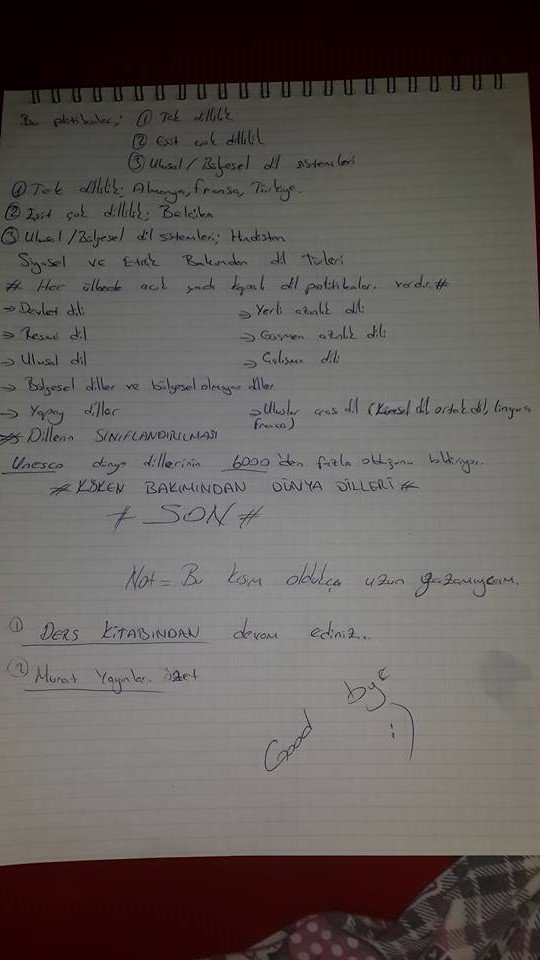 Bu politikalar; ① Tek dillilik
② Eşit çok dillilik
③ Ulusal / Bölgesel dil sistemleri
① Tek dillilik; Almanya, fransa, Türkiye.
② Eşit çok dillilik; Belçika
③ Ulusal / Bölgesel dil sistemleri; Hindistan
Siyasal ve Etnik Bakımdan dil Türleri
# Her ülkede açık yada kapalı dil politikaları vardır. #
→ Devlet dili → Yerli azınlık dili
→ Resmi dil → Göçmen azınlık dili
→ Ulusal dil → Çalışma dili
→ Bölgesel diller ve bölgesel olmayan diller
→ Yapay diller → Uluslar arası dil (Küresel dil, ortak dil, lingua franca)
# Dillerin SINIFLANDIRILMASI
Unesco dünya dillerinin 6000'den fazla olduğunu bildiriyor.
# KÖKEN BAKIMINDAN DÜNYA DİLLERİ #
# SON #
Not = Bu kısım oldukça uzun yazamıycam.
① DERS KİTABINDAN devam ediniz...
② Murat Yayınları özet
Good bye :)